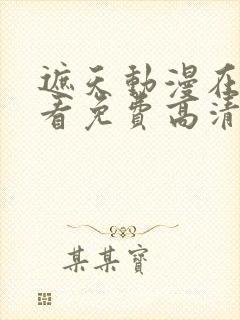 遮天動漫在
看免費高清
某某寶